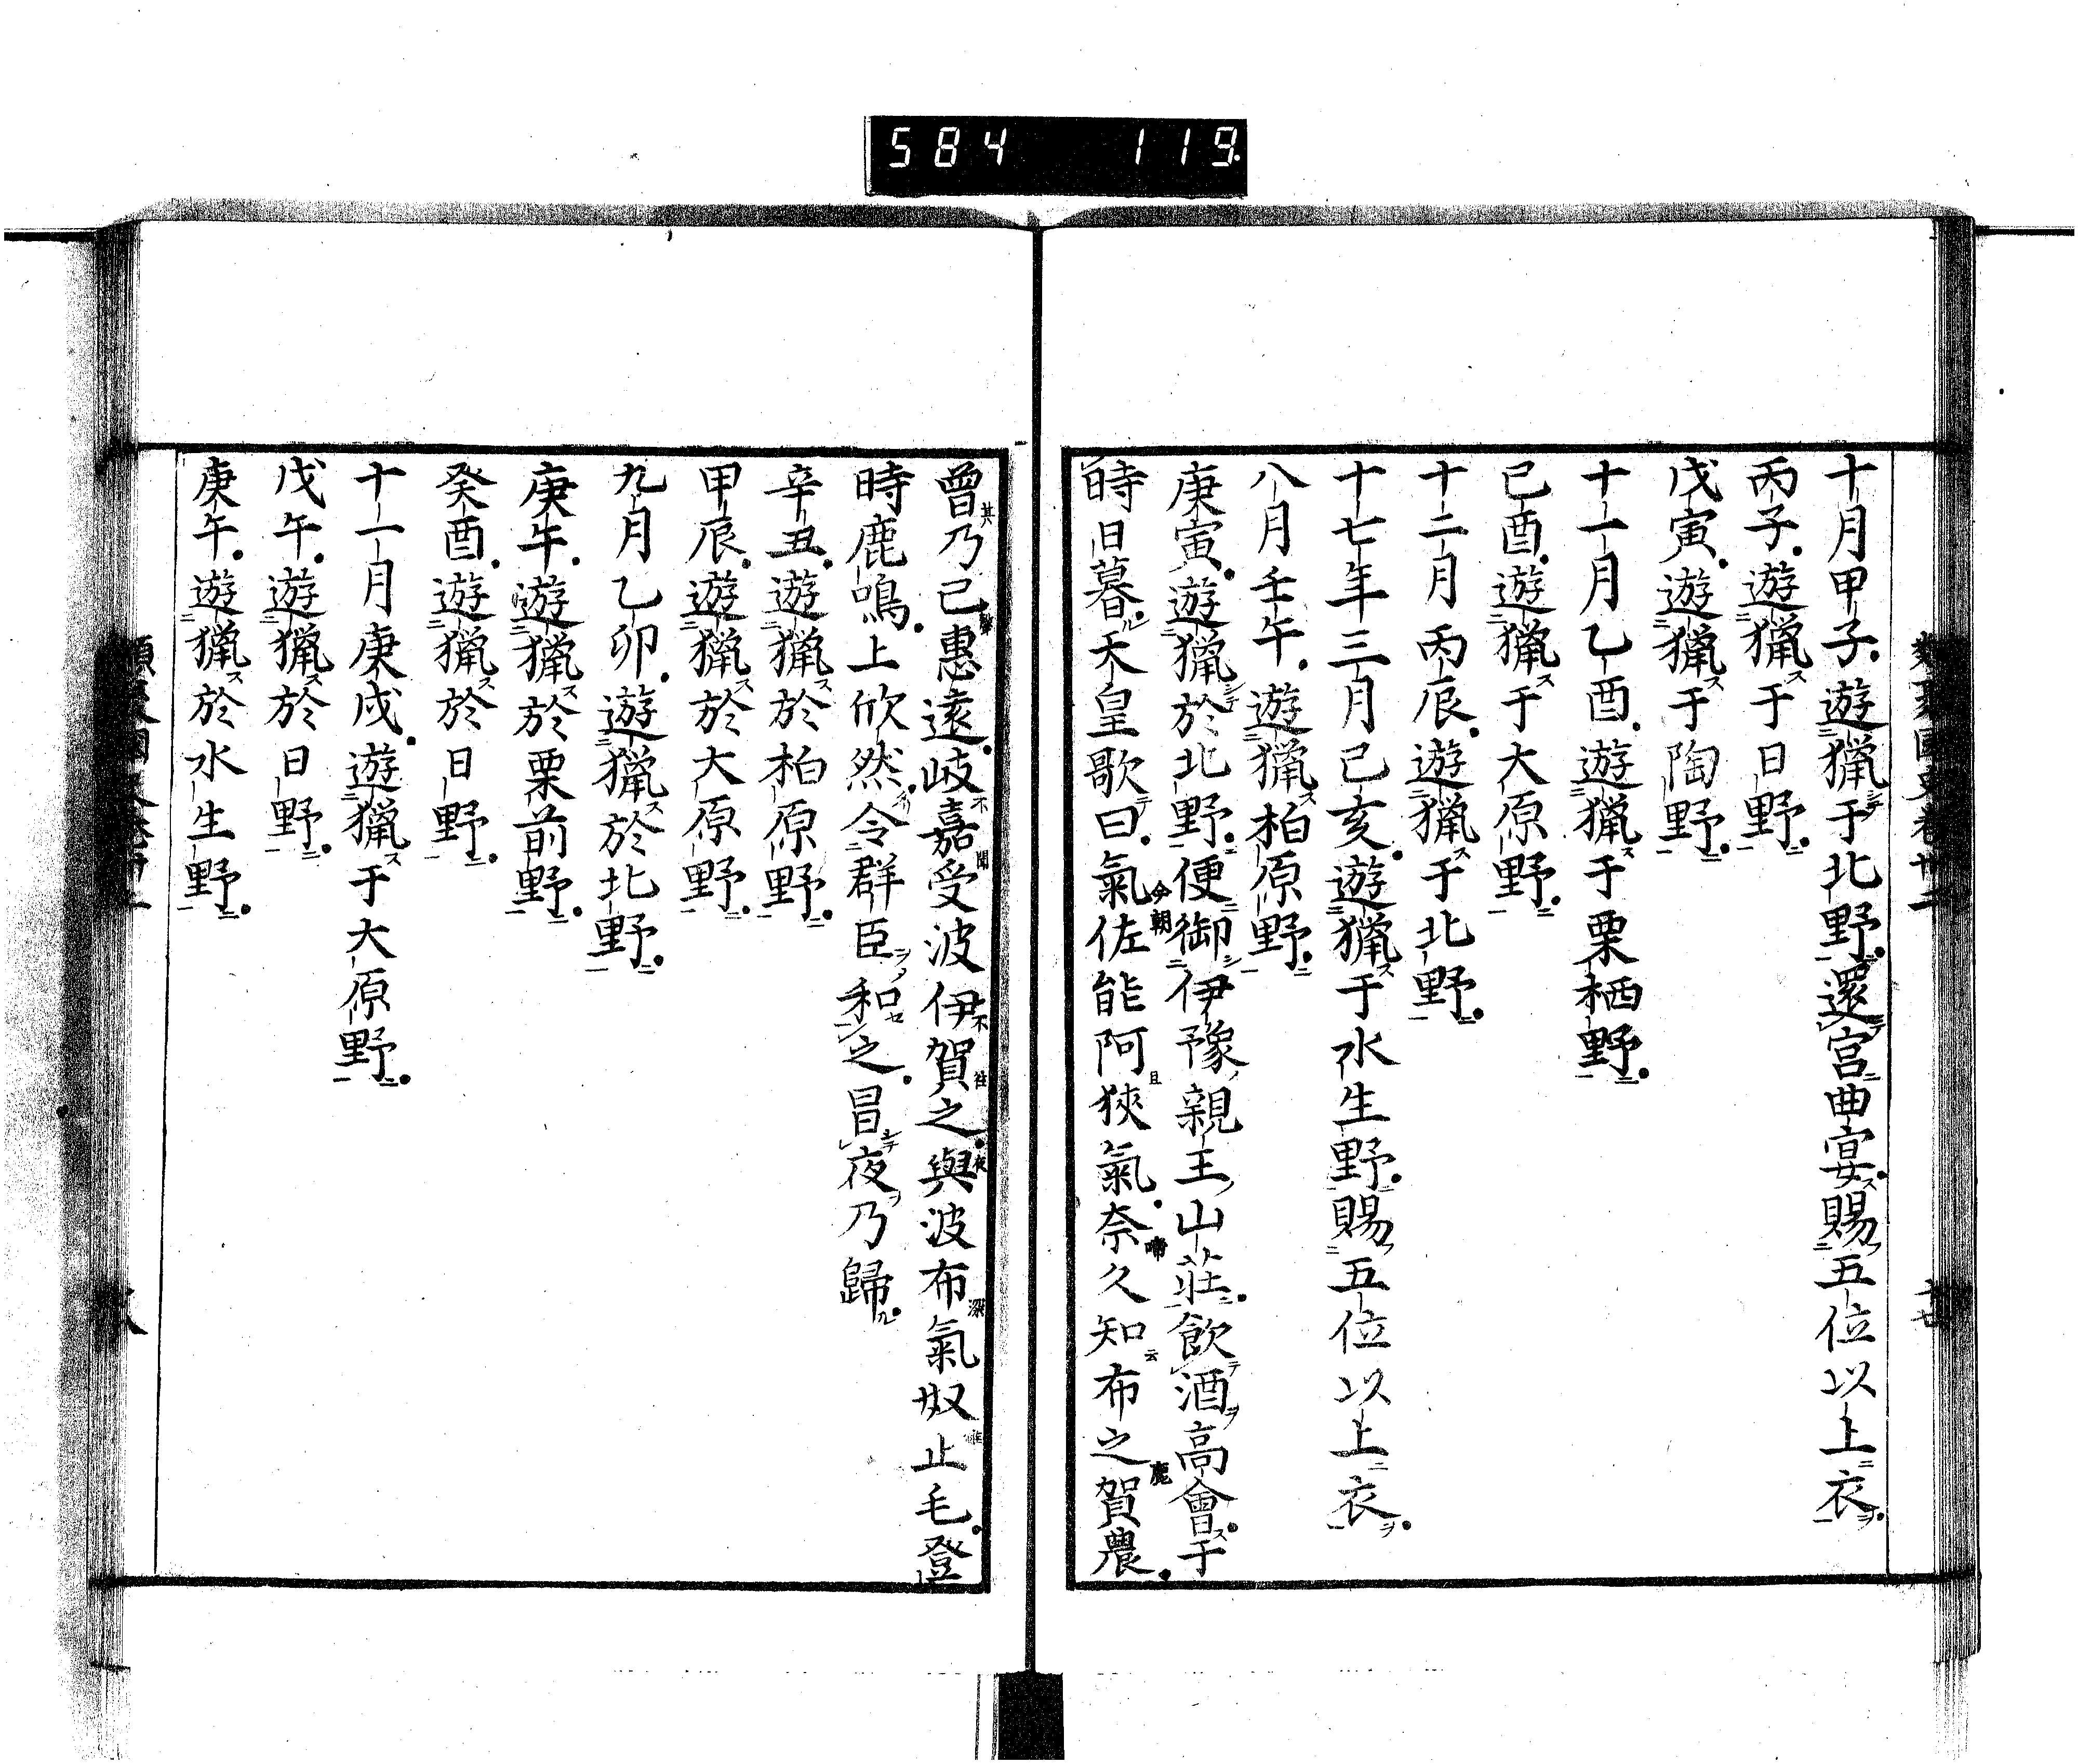 584 119
類聚國史卷卅二
十月甲子遊獵于北野還宮曲宴賜五位以上衣
丙子遊獵于日野
戊寅遊獵于陶野
十一月乙酉遊獵于栗栖野
己酉遊獵于大原野
十二月丙辰遊獵于北野
十七年三月己亥遊獵于水生野賜五位以上衣
八月壬午遊獵柏原野
庚寅遊獵於北野便御伊豫親王山莊飲酒高會于
時日暮天皇歌曰氣佐能阿狹氣奈久知布之賀農
曾乃己惠遠岐嘉受波伊賀之與波布氣奴止毛登
時鹿鳴上欣然令群臣和之冒夜乃歸
辛丑遊獵於柏原野
甲辰遊獵於大原野
九月乙卯遊獵於北野
庚午遊獵於栗前野
癸酉遊獵於日野
十一月庚戌遊獵于大原野
戊午遊獵於日野
庚午遊獵於水生野